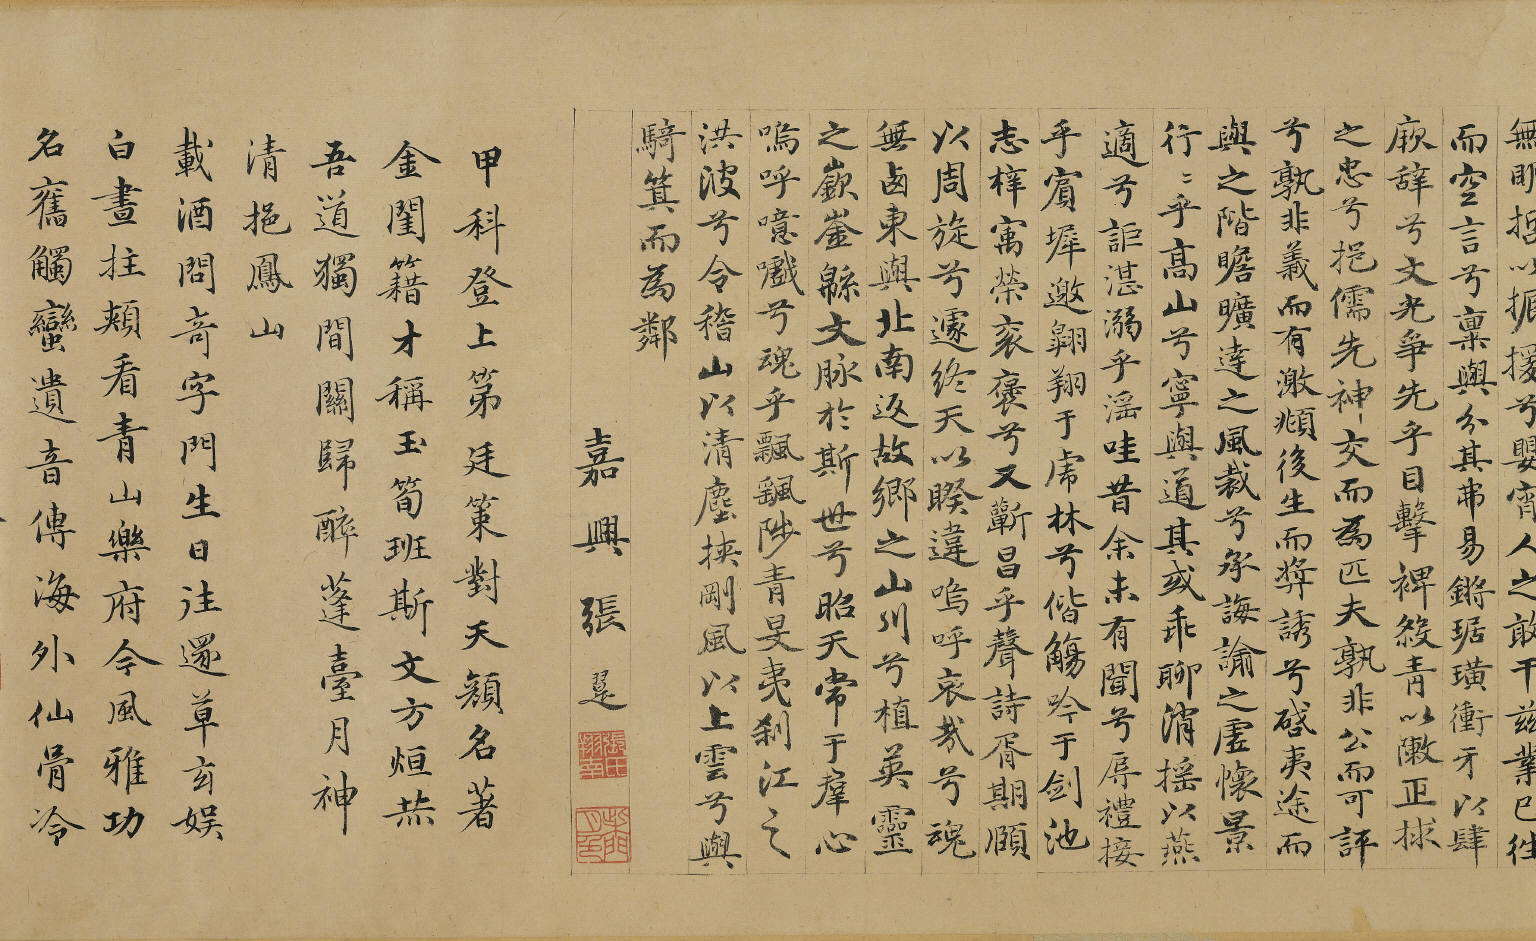 無即挋以振援兮嬰宵人之敢干兹業已徃
而空言兮稟輿分其弗易鏘琚璜衝牙以肆
厥辞兮文光爭先乎目擊裨綬青以敶正捄
之忠兮挹儒先神交而為匹夫孰非公而可評
兮孰非義而有激頫後生而奨誘兮啓夷途而
與之階瞻曠達之風裁兮承誨諭之虚懷景
行〻乎高山兮寧與道其或乖聊消揺以燕
適兮詎湛溺乎滛哇昔余未有聞兮辱禮接
乎賓墀邀翺翔于虎林兮偕觴吟于剑池
志梓寓榮衮褒兮又蘄昌乎聲詩胥期願
以周旋兮遽終天以暌違嗚呼哀㦲兮魂
無卤東與北南返故鄉之山川兮植英靈
之嶔崟緜文脉於斯世兮昭天常于羣心
嗚呼噫嚱兮魂乎飄飖陟青旻夷刹江之
洪波兮令稽山以清塵挾剛風以上雲兮與
騎箕而為鄰
嘉興張翨
甲科登上第廷策對天顔名著
金閨籍才稱玉筍班斯文方烜恭
吾道獨間關歸醉蓬臺月神
清挹鳳山
載酒問竒字門生日往還草玄娱
白晝拄頰看青山樂府今風雅功
名舊觸蠻遺音傳海外仙骨冷